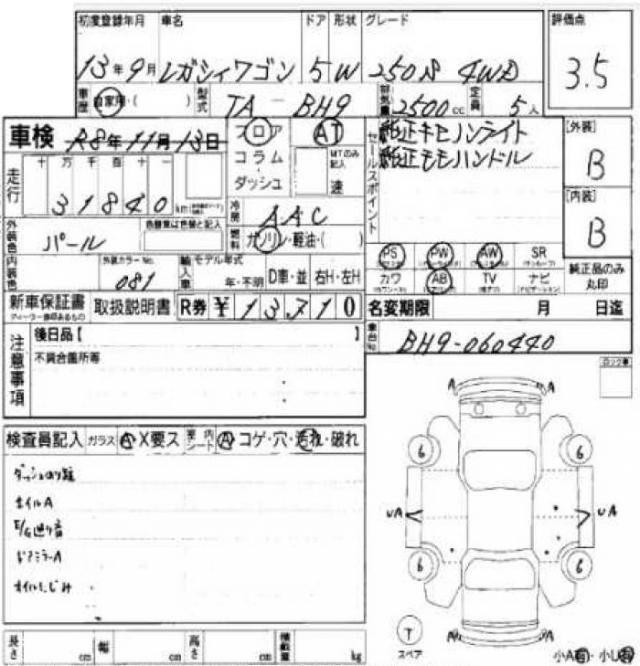 初度登録年月 車名 ドア 形状 グレード 評価点
13年9月 レガシィワゴン 5 W 250S 4WD 3.5
車歴 自家用・( ) 型式 TA-BH9 排気量 2500cc 定員 5人
車検 R8年11月13日 フロア AT
コラム MTのみ記入
ダッシュ 速
セールスポイント 純正キセノンライト
純正モモハンドル
[外装] B
[内装] B
走行 十 万 千 百 十 一
31840 km
冷房 AAC
外装色 パール 色替車は色替と記入
燃料 ガソリン・軽油・( )
PS PW AW SR
カワ AB TV ナビ
純正品のみ丸印
内装色 外装カラーNo. 081 輸入車 モデル年式 年・不明 D車・並 右H・左H
新車保証書 取扱説明書 R券 ¥13710
名変期限 月 日迄
車台No. BH9-060440
注意事項
後日品【 】
不具合箇所等
検査員記入 ガラス A・X要ス 内 シート A コゲ・穴・汚れ・破れ
ホイルA
ドアミラーA
オイルにじみ
A A
6 6
UA UA
6 6
A A
T
スペア
長さ cm 幅 cm 高さ cm 積載量 kg